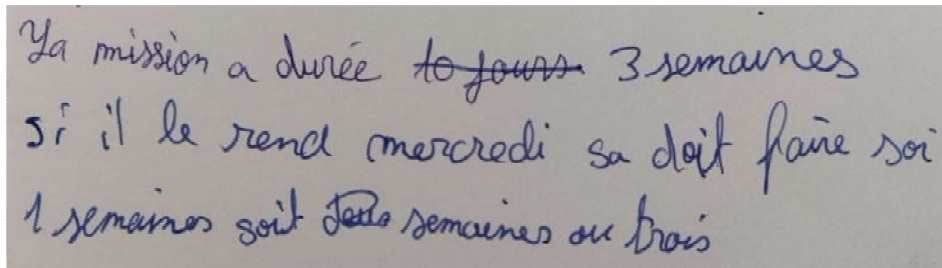 Ya mission a durée to jours 3 semaines
si il le rend mercredi sa doit faire soi
1 semaines soit semaines ou trois